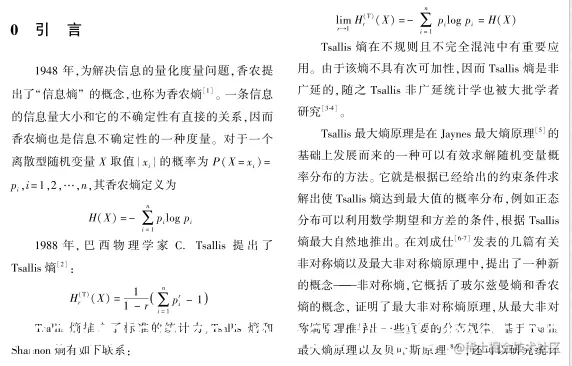 0 引 言
1948 年,为解决信息的量化度量问题,香农提
出了“信息熵”的概念,也称为香农熵[1]。一条信息
的信息量大小和它的不确定性有直接的关系,因而
香农熵也是信息不确定性的一种度量。对于一个
离散型随机变量 X 取值{x_i}的概率为 P(X=x_i)=
p_i,i=1,2,…,n,其香农熵定义为
H(X)=- ∑_{i=1}^{n} p_i log p_i
1988 年,巴西物理学家 C. Tsallis 提出了
Tsallis 熵[2]:
H_r^{(T)}(X)= 1/(1-r) (∑_{i=1}^{n} p_i^r - 1)
Tsallis 熵推广了标准的统计力, Tsallis 熵和
Shannon 熵有如下联系:
lim_{r→1} H_r^{(T)}(X)=- ∑_{i=1}^{n} p_i log p_i = H(X)
Tsallis 熵在不规则且不完全混沌中有重要应
用。由于该熵不具有次可加性,因而 Tsallis 熵是非
广延的,随之 Tsallis 非广延统计学也被大批学者
研究[3-4]。
Tsallis 最大熵原理是在 Jaynes 最大熵原理[5]的
基础上发展而来的一种可以有效求解随机变量概
率分布的方法。它就是根据已经给出的约束条件求
解出使 Tsallis 熵达到最大值的概率分布,例如正态
分布可以利用数学期望和方差的条件,根据 Tsallis
熵最大自然地推出。在刘成仕[6-7]发表的几篇有关
非对称熵以及最大非对称熵原理中,提出了一种新
的概念——非对称熵,它概括了玻尔兹曼熵和香农
熵的概念, 证明了最大非对称熵原理,从最大非对
称熵原理推导出一些重要的分布规律。基于 Tsallis
最大熵原理以及贝叶斯原理,还可以研究统计
@稀土掘金技术社区